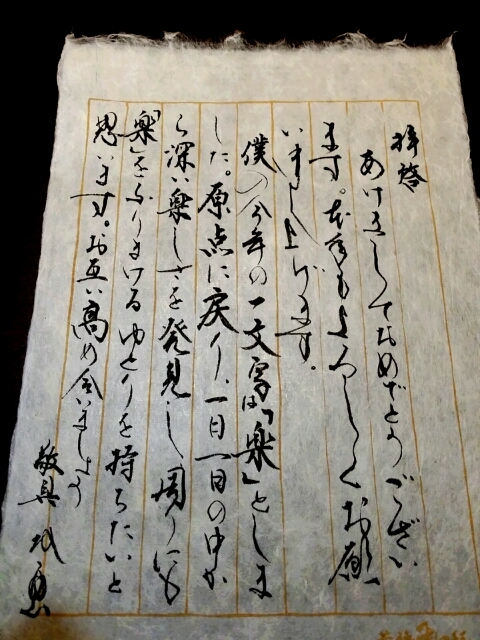 拝啓
あけましておめでとうござい
ます。本年もよろしくお願
いまし上げます。
僕の今年の一文字は「楽」としま
した。原点に戻り、一日一日の中か
ら深い楽しさを発見し周りにも
「楽」をふりまけるゆとりを持ちたいと
思います。お互い高め合いましょう
敬具